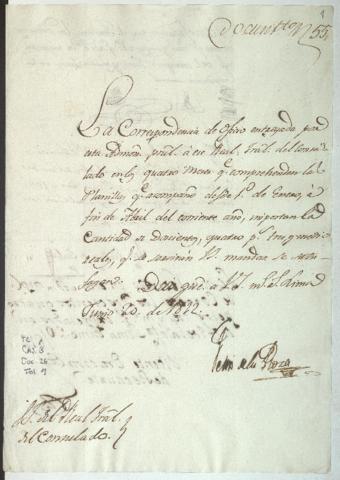 Documto No 55.
La Correspondencia de Oficio entregada por
esta Admon. pral. á ese Real Tral. del Consu
lado en los quatro Meses qe. comprehenden las
Planillas qe. acompaño desde 1o. de Enero, á
fin de Abril del corriente año, importan la
Cantidad de Docientos, quatro ps.
reales, qe. se servirán VS. mandar se satis
fagan.
Dios gue. á V.S. ms. as. Lima
Junio 20. de 1822.
Pe.
Caj. 8
Doc. 26
Fol. 9
Real Tral.
del Consulado.